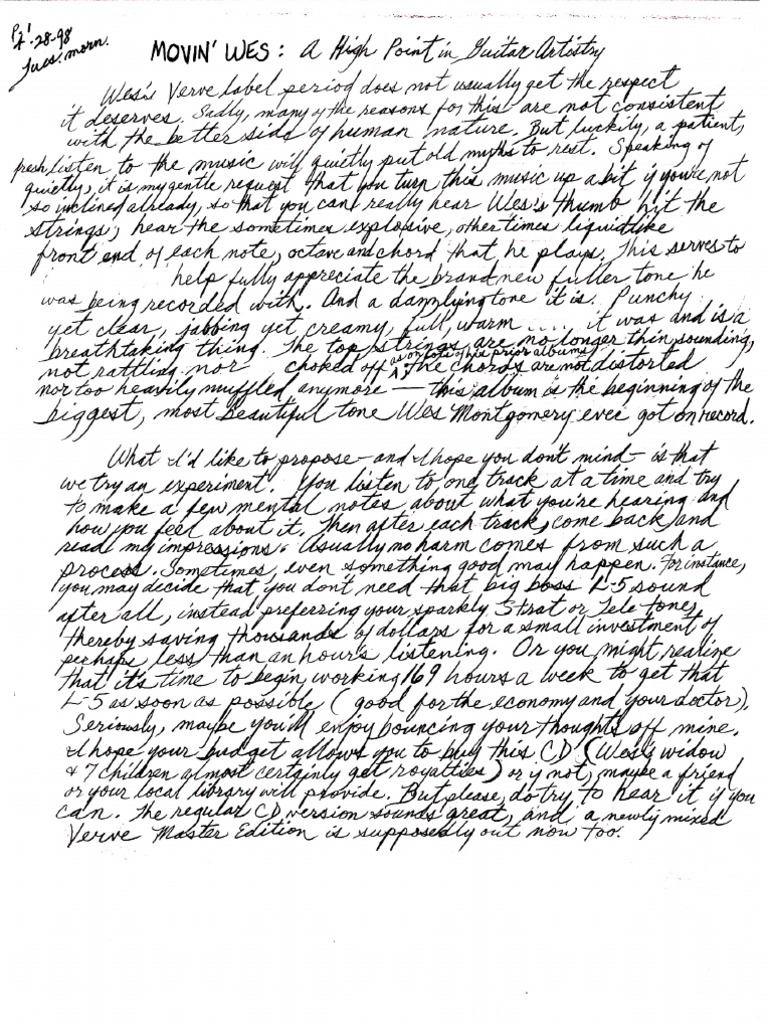 P.1
7-28-98
Tues. morn.
MOVIN' WES: A High Point in Guitar Artistry
Wes's Verve label period does not usually get the respect
it deserves. Sadly, many of the reasons for this are not consistent
with the better side of human nature. But luckily, a patient,
fresh listen to the music will quietly put old myths to rest. Speaking of
quietly, it is my gentle request that you turn this music up a bit if you're not
so inclined already, so that you can really hear Wes's thumb hit the
strings, hear the sometimes explosive, other times liquidlike
front end of each note, octave and chord that he plays. This serves to
help fully appreciate the brand new fuller tone he
was being recorded with. And a dazzling tone it is. Punchy
yet clear, jabbing yet creamy, full, warm .... it was and is a
breathtaking thing. The top strings are no longer thin sounding,
not rattling nor choked off as on lots of his prior albums. The chords are not distorted
nor too heavily muffled anymore — this album is the beginning of the
biggest, most beautiful tone Wes Montgomery ever got on record.
What I'd like to propose - and I hope you don't mind - is that
we try an experiment. You listen to one track at a time and try
to make a few mental notes about what you're hearing and
how you feel about it. Then after each track, come back and
read my impressions. Usually no harm comes from such a
process. Sometimes, even something good may happen. For instance,
you may decide that you don't need that big boss L-5 sound
after all, instead preferring your sparkly Strat or Tele tones,
thereby saving thousands of dollars for a small investment of
perhaps less than an hour's listening. Or you might realize
that it's time to begin working 169 hours a week to get that
L-5 as soon as possible (good for the economy and your doctor).
Seriously, maybe you'll enjoy bouncing your thoughts off mine.
I hope your budget allows you to buy this CD (Wes's widow
& 7 children almost certainly get royalties) or if not, maybe a friend
or your local library will provide. But please, do try to hear it if you
can. The regular CD version sounds great, and a newly mixed
Verve Master Edition is supposedly out now too.